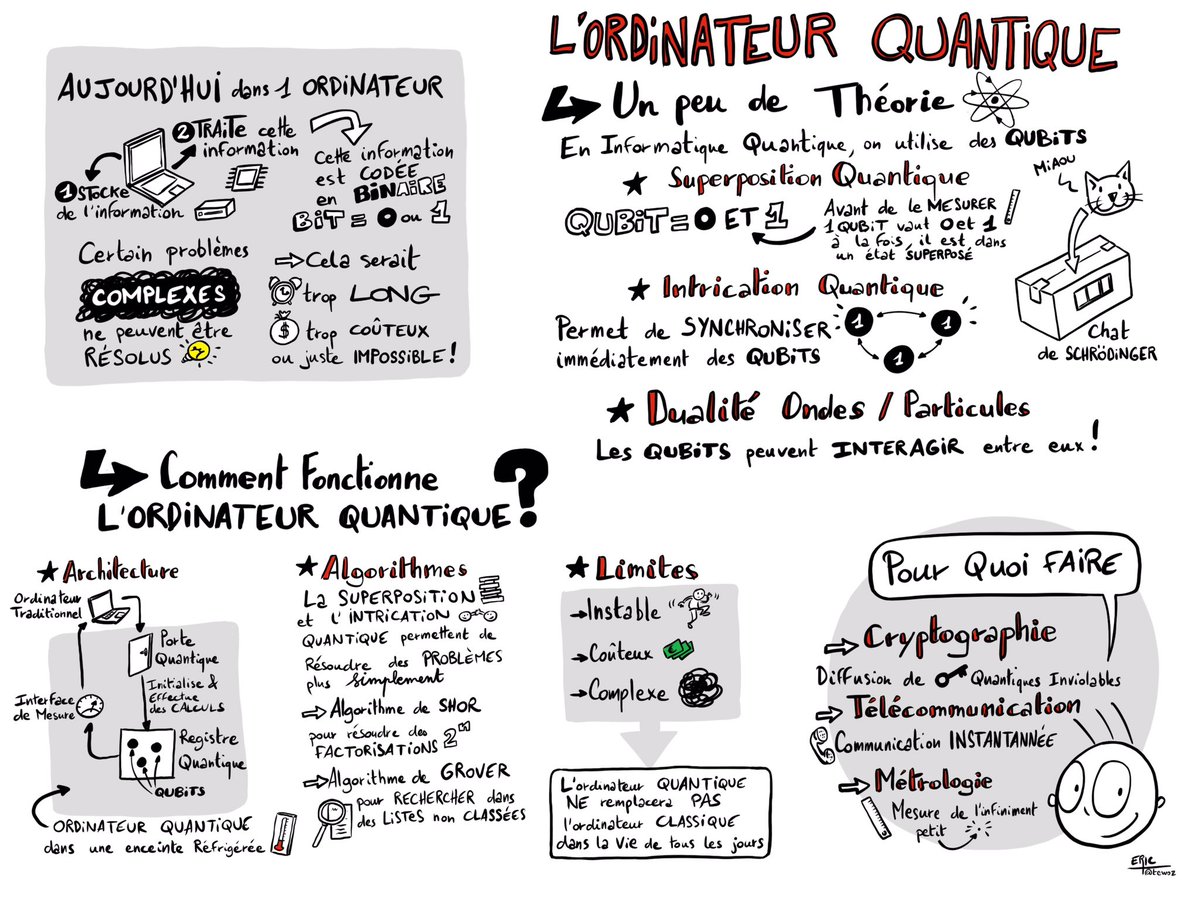 L'ORDINATEUR QUANTIQUE
AUJOURD'HUI dans 1 ORDINATEUR
1 STOCKE
de l'information
2 TRAITE cette
information
Cette information
est CODÉE
en BINAIRE
BIT = 0 ou 1
Certain problèmes
COMPLEXES
ne peuvent être
RÉSOLUS
⇒ Cela serait
trop LONG
$
trop COÛTEUX
ou juste IMPOSSIBLE !
Un peu de Théorie
En Informatique Quantique, on utilise des QUBITS
★ Superposition Quantique
QUBIT = 0 ET 1
Avant de le MESURER
1 QUBIT vaut 0 et 1
à la fois, il est dans
un état SUPERPOSÉ
MIAOU
Chat
de SCHRÖDINGER
★ Intrication Quantique
Permet de SYNCHRONISER
immédiatement des QUBITS
1
1
1
★ Dualité Ondes / Particules
Les QUBITS peuvent INTERAGIR entre eux !
Comment Fonctionne
L'ORDINATEUR QUANTIQUE ?
★ Architecture
Ordinateur
Traditionnel
Porte
Quantique
Initialise &
Effectue
des CALCULS
Interface
de Mesure
Registre
Quantique
QUBITS
ORDINATEUR QUANTIQUE
dans une enceinte Réfrigérée
★ Algorithmes
La SUPERPOSITION
et l'INTRICATION
QUANTIQUE permettent de
Résoudre des PROBLÈMES
plus simplement
⇒ Algorithme de SHOR
pour résoudre des
FACTORISATIONS 2ⁿ
⇒ Algorithme de GROVER
pour RECHERCHER dans
des LISTES non CLASSÉES
★ Limites
→ Instable
→ Coûteux
→ Complexe
L'ordinateur QUANTIQUE
NE remplacera PAS
l'ordinateur CLASSIQUE
dans la Vie de tous les jours
Pour Quoi FAIRE
⇒ Cryptographie
Diffusion de Quantiques Inviolables
⇒ Télécommunication
Communication INSTANTANNÉE
⇒ Métrologie
Mesure de l'infiniment
petit
ERIC
@tcwoz